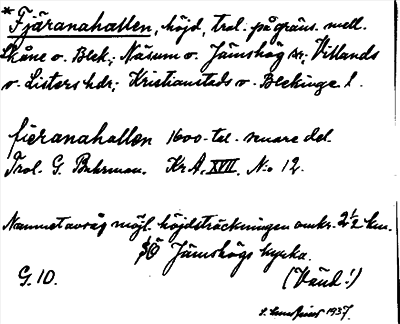 * Fjäranahallen, höjd, trol. på gräns. mell.
Skåne o. Blek.; Näsum o. Jämshög snr; Villands
o. Listers hdr; Kristianstads o. Blekinge l.
fieranahallen 1600-tal. senare del.
Trol. G. Buhrman. Kr A. XVII, No 12.
Namnet avsåg möjl. höjdsträckningen omkr. 2½ km.
SÖ Jämshögs kyrka.
G. 10. (Vänd!)
1937.